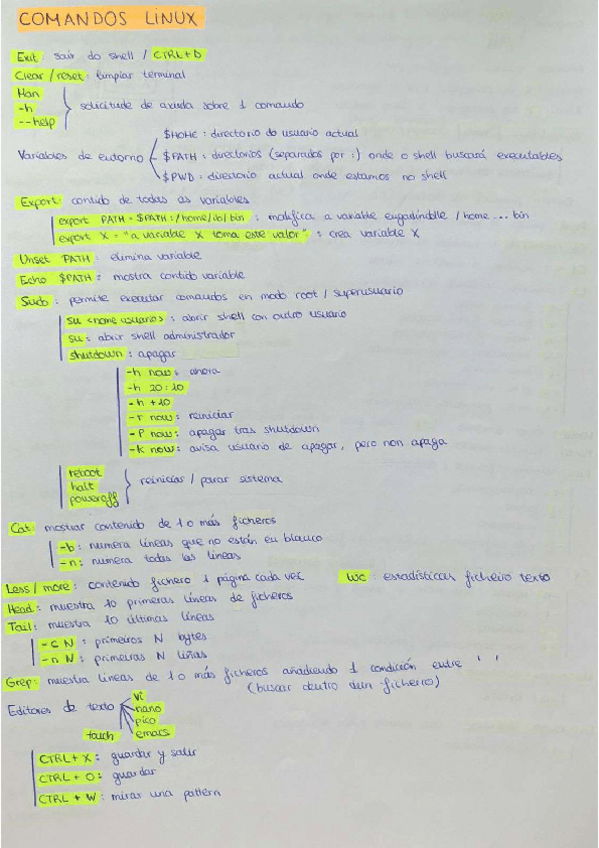 COMANDOS LINUX
Exit: sair do shell / CTRL+D
Clear / reset: limpiar terminal
Man
-h
--help
solicitude de axuda sobre 1 comando
Variables de entorno
$HOME: directorio do usuario actual
$PATH: directorios (separados por :) onde o shell buscará executables
$PWD: directorio actual onde estamos no shell
Export: contido de todas as variables
export PATH = $PATH:/home/ib/bin : modifica a variable engadíndolle /home ... bin
export X = "a variable X toma este valor" : crea variable X
Unset PATH: elimina variable
Echo $PATH: mostra contido variable
Sudo: permite executar comandos en modo root / superusuario
su <nome usuario>: abrir shell con outro usuario
su: abrir shell administrador
shutdown: apagar
-h now: ahora
-h 20:10
-h +10
-r now: reiniciar
-P now: apagar tras shutdown
-k now: avisa usuario de apagar, pero non apaga
reboot
halt
poweroff
reiniciar / parar sistema
Cat: mostrar contenido de 1 o más ficheros
-b: numera líneas que no están en blanco
-n: numera todas las líneas
Less / more: contenido fichero 1 página cada vez
wc: estadísticas ficheiro texto
Head: muestra 10 primeras líneas de ficheros
Tail: muestra 10 últimas líneas
-c N: primeiros N bytes
-n N: primeiras N liñas
Grep: muestra líneas de 1 o más ficheros añadiendo 1 condición entre ' '
(buscar dentro dun ficheiro)
Editores de texto
vi
nano
pico
emacs
touch
CTRL + X: guardar y salir
CTRL + O: guardar
CTRL + W: mirar una pattern